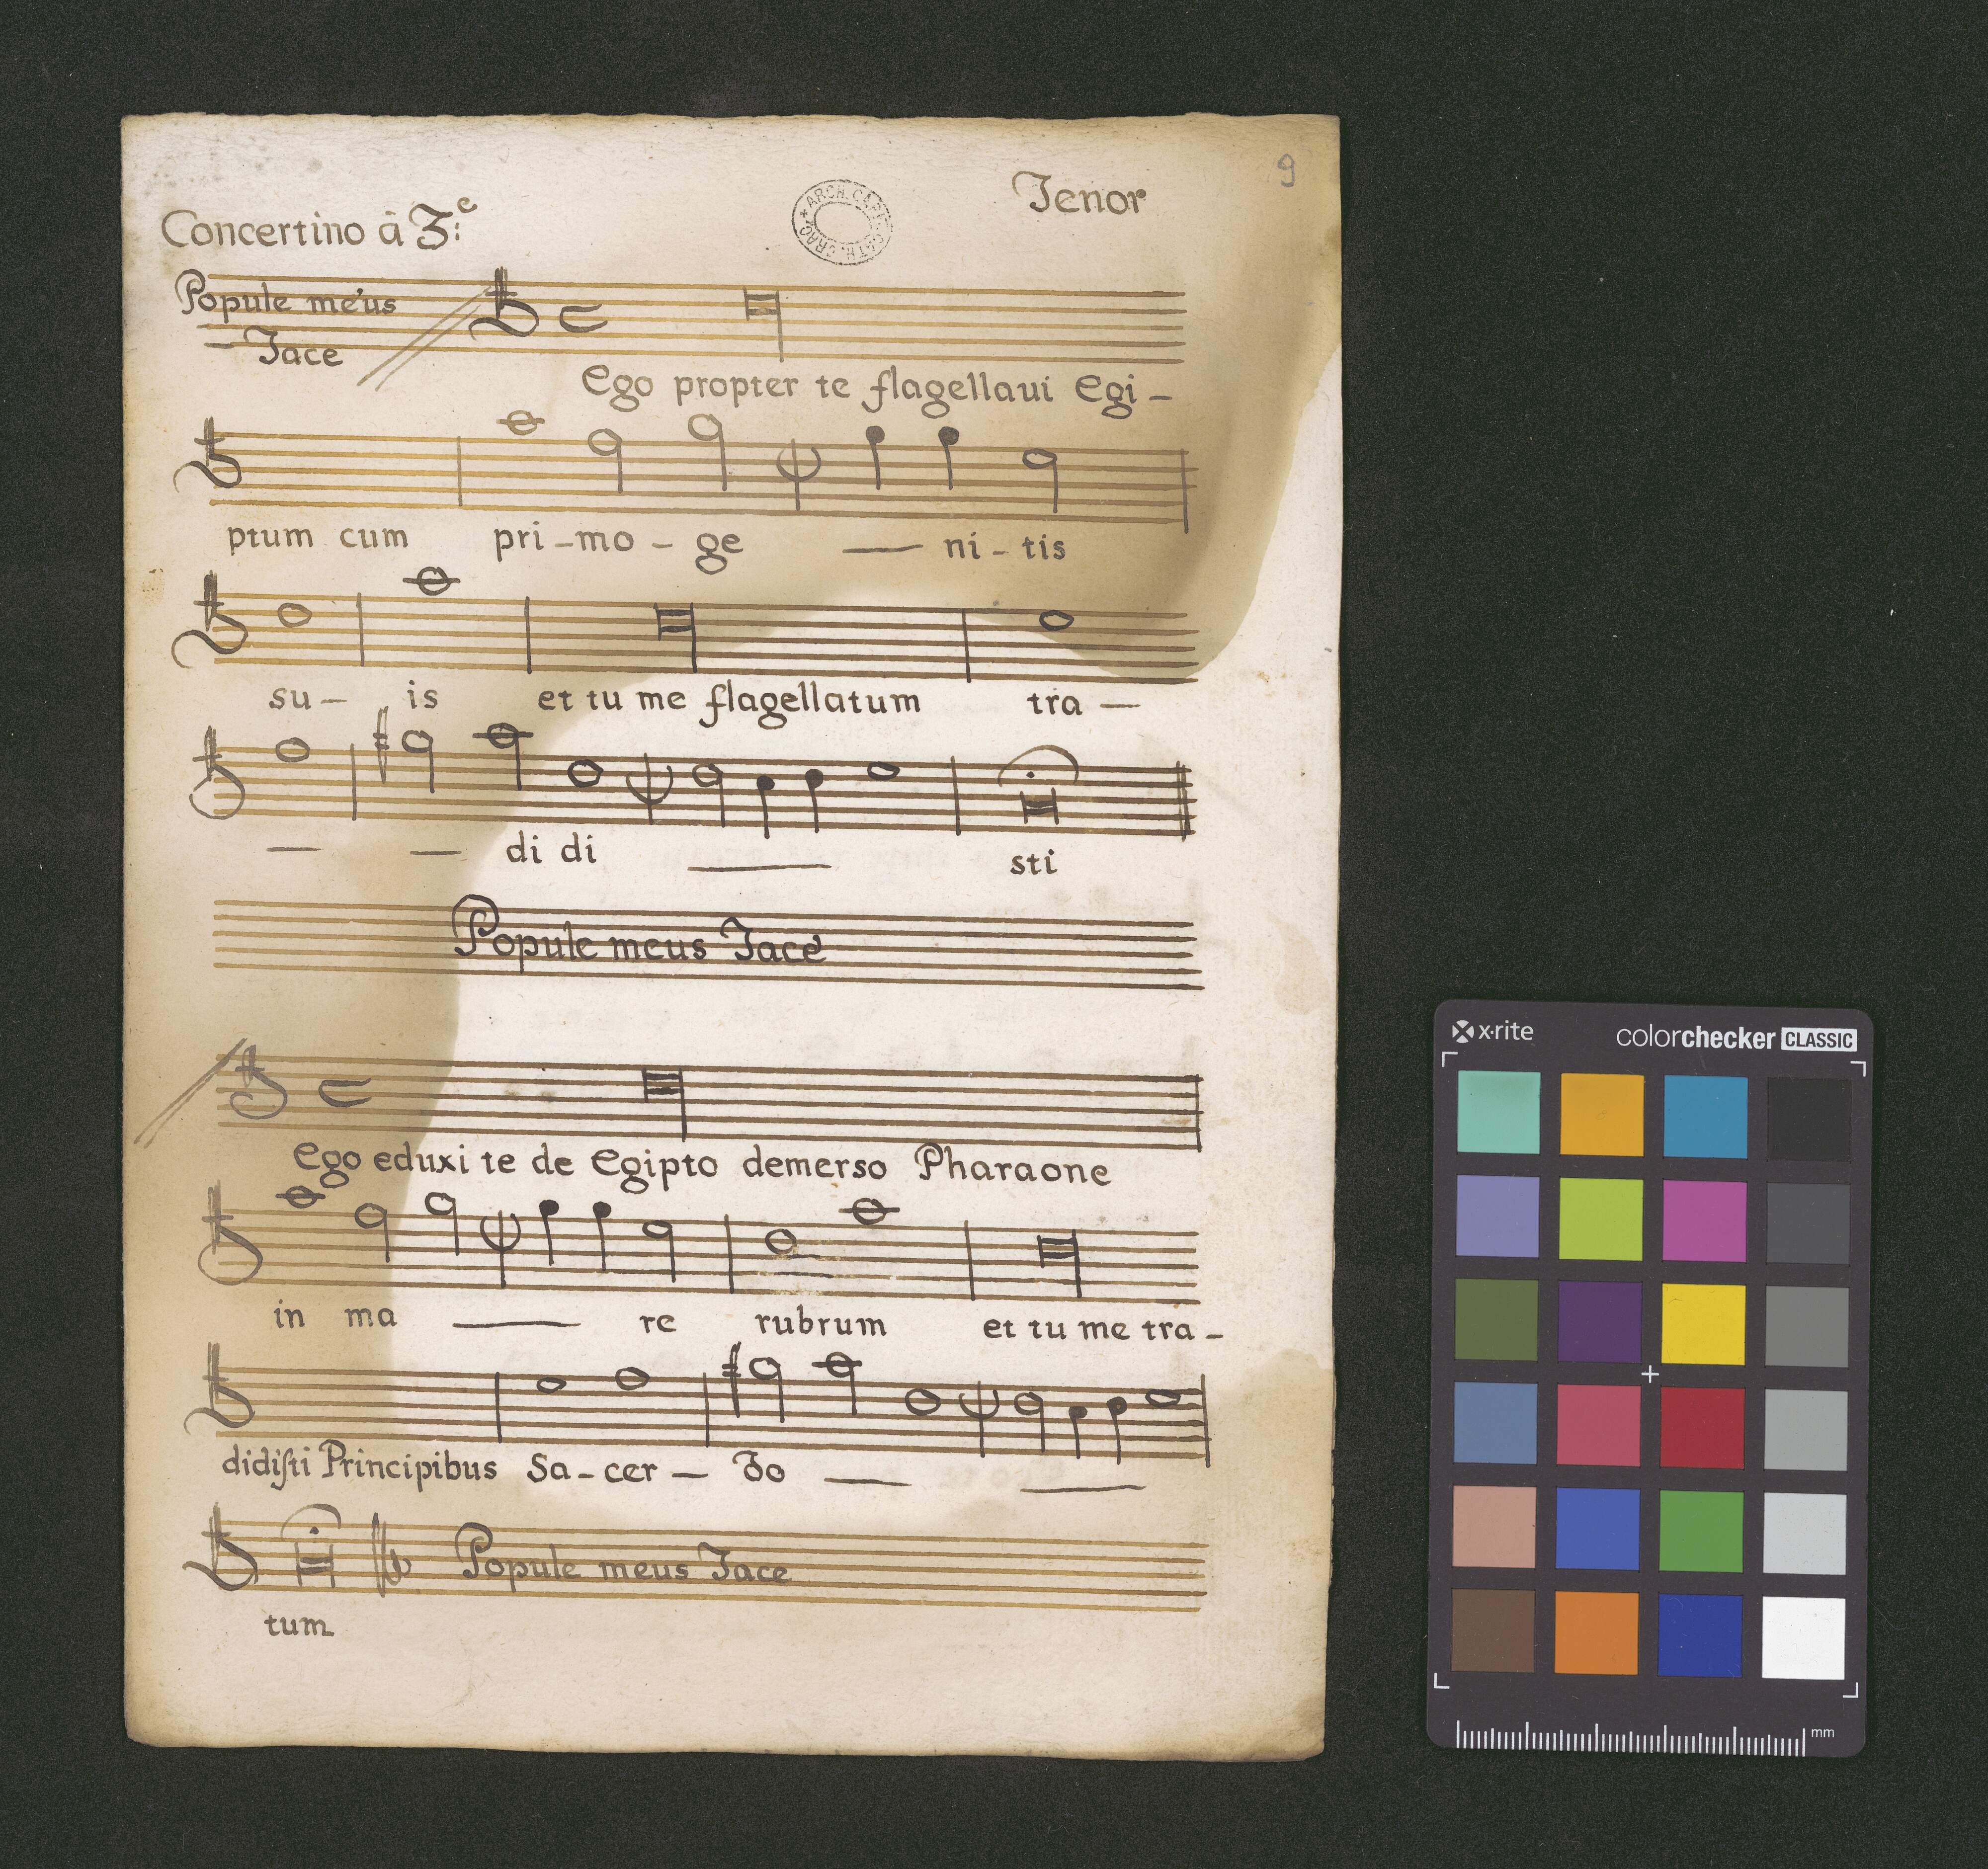 9
Tenor
Concertino â 3.e
ARCH. CAPIT. CATH. CRAC.
Popule meus
Tace
Ego propter te flagellaui Egi-
ptum cum pri-mo-ge — ni-tis
su- is et tu me flagellatum tra —
— — di di — sti
Popule meus Tace
Ego eduxi te de Egipto demerso Pharaone
in ma — re rubrum et tu me tra-
didiſti Principibus Sa-cer — do — —
Popule meus Tace
tum
x·rite colorchecker CLASSIC
mm